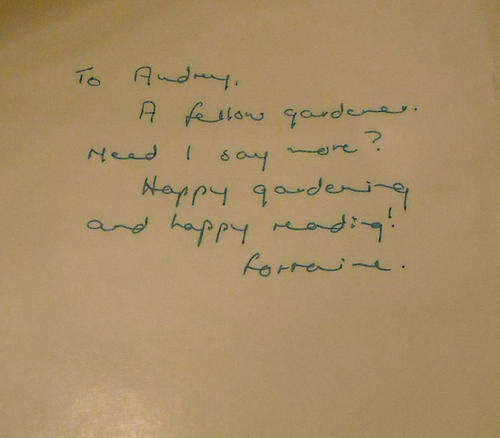 To Audrey.
A fellow gardener.
Need I say more?
Happy gardening
and happy reading!
Lorraine.